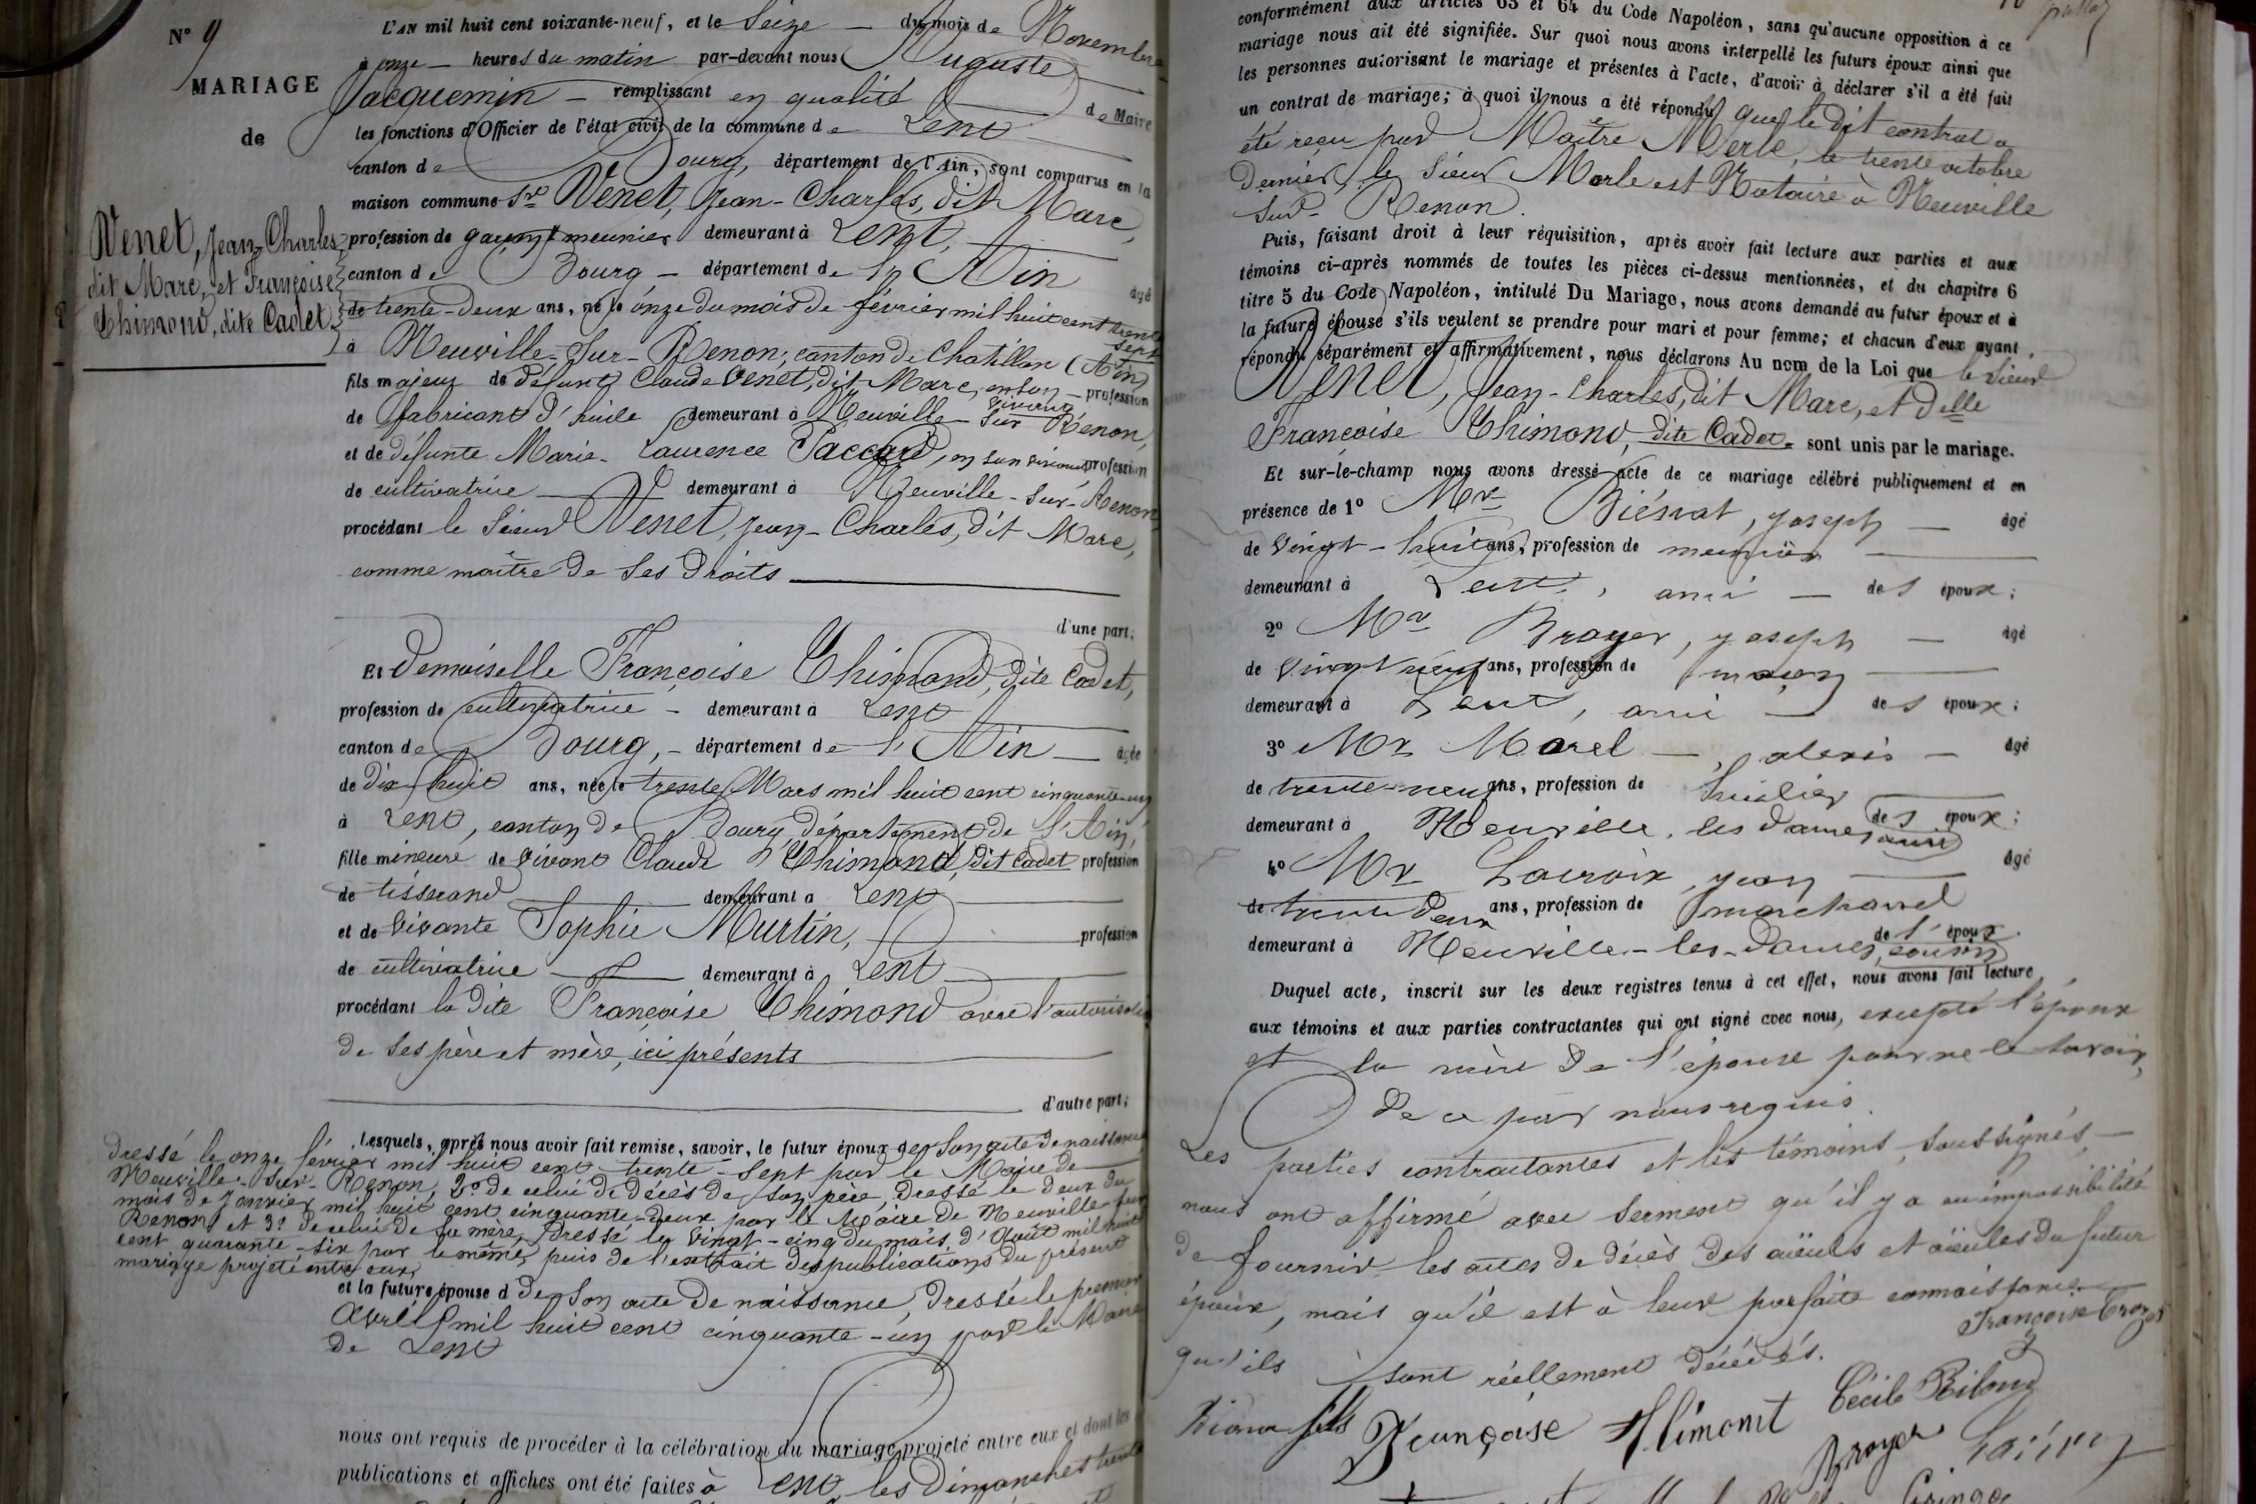 N° 9
MARIAGE
de
Venet, Jean-Charles,
dit Marc, et Françoise
Chimond, dite Cadet.
L'AN mil huit cent soixante-neuf, et le Seize du mois de Novembre
à onze heures du matin par-devant nous Auguste
Jacquemin remplissant en qualité de Maire
les fonctions d'Officier de l'état civil de la commune de Lent
canton de Bourg, département de l'Ain, sont comparus en la
maison commune Sr Venet, Jean-Charles, dit Marc,
profession de garçon meunier demeurant à Lent,
canton de Bourg département de l'Ain âgé
de trente-deux ans, né le onze du mois de février mil huit cent trente
sept
à Neuville-Sur-Renon, canton de Chatillon (Ain)
fils majeur de défunt Claude Venet, dit Marc, en son profession
vivant
de fabricant d'huile demeurant à Neuville-Sur Renon,
et de défunte Marie-Laurence Paccard, en son vivant profession
de cultivatrice demeurant à Neuville-Sur-Renon
procédant le Sieur Venet, Jean-Charles, dit Marc,
comme maître de ses droits
d'une part;
Et Demoiselle Françoise Chimond, dite Cadet,
profession de cultivatrice demeurant à Lent
canton de Bourg, département de l'Ain âgée
de dix huit ans, née le trente Mars mil huit cent cinquante-un
à Lent, canton de Bourg, département de l'Ain,
fille mineure de vivant Claude Chimond, dit Cadet profession
de tisserand demeurant à Lent
et de vivante Sophie Murtin, profession
de cultivatrice demeurant à Lent
procédant la dite Françoise Chimond avec l'autorisation
de ses père et mère, ici présents
d'autre part;
Lesquels, après nous avoir fait remise, savoir, le futur époux de son acte de naissance
dressé le onze février mil huit cent trente-sept par le Maire de
Neuville-Sur-Renon, 2° de celui de décès de son père, dressé le deux du
mois de Janvier mil huit cent cinquante-deux par le Maire de Neuville-sur
Renon, et 3° de celui de sa mère, dressé le vingt-cinq du mois d'Août mil huit
cent quarante-six par le même, puis de l'extrait des publications du présent
mariage projeté entre eux,
et la future épouse d de son acte de naissance, dressé le premier
Avril mil huit cent cinquante-un par le Maire
de Lent
nous ont requis de procéder à la célébration du mariage projeté entre eux et dont les
publications et affiches ont été faites à Lent, les Dimanches trente
conformément aux articles 63 et 64 du Code Napoléon, sans qu'aucune opposition à ce
mariage nous ait été signifiée. Sur quoi nous avons interpellé les futurs époux ainsi que
les personnes autorisant le mariage et présentes à l'acte, d'avoir à déclarer s'il a été fait
un contrat de mariage; à quoi il nous a été répondu que le dit contrat a
été reçu par Maître Merle, le trente octobre
dernier, le Sieur Merle est Notaire à Neuville
Sur-Renon.
Puis, faisant droit à leur réquisition, après avoir fait lecture aux parties et aux
témoins ci-après nommés de toutes les pièces ci-dessus mentionnées, et du chapitre 6
titre 5 du Code Napoléon, intitulé Du Mariage, nous avons demandé au futur époux et à
la future épouse s'ils veulent se prendre pour mari et pour femme; et chacun d'eux ayant
répondu séparément et affirmativement, nous déclarons Au nom de la Loi que le Sieur
Venet, Jean-Charles, dit Marc, et Delle
Françoise Chimond, dite Cadet sont unis par le mariage.
Et sur-le-champ nous avons dressé acte de ce mariage célébré publiquement et en
présence de 1° Mr Joseph âgé
de Vingt-huit ans, profession de meunier
demeurant à Lent, ami des époux;
2° Mr Brayer, Joseph âgé
de Vingt neuf ans, profession de maçon
demeurant à Lent, ami des époux;
3° Mr Morel, alexis âgé
de trente-neuf ans, profession de huilier
demeurant à Neuville, les Dames ami des époux;
4° Mr Lacroix, Jean âgé
de trente deux ans, profession de marchand
demeurant à Neuville-les-Dames, cousin de l'époux.
Duquel acte, inscrit sur les deux registres tenus à cet effet, nous avons fait lecture
aux témoins et aux parties contractantes qui ont signé avec nous, excepté l'époux
et la mère de l'épouse pour ne le savoir,
de ce par nous requis.
Les parties contractantes et les témoins, soussignés
nous ont affirmé avec serment qu'il y a eu impossibilité
de fournir les actes de décès des aïeuls et aïeules du futur
époux, mais qu'il est à leur parfaite connaissance
qu'ils sont réellement décédés.
Françoise
fils Françoise Chimont Cécile
Broyer